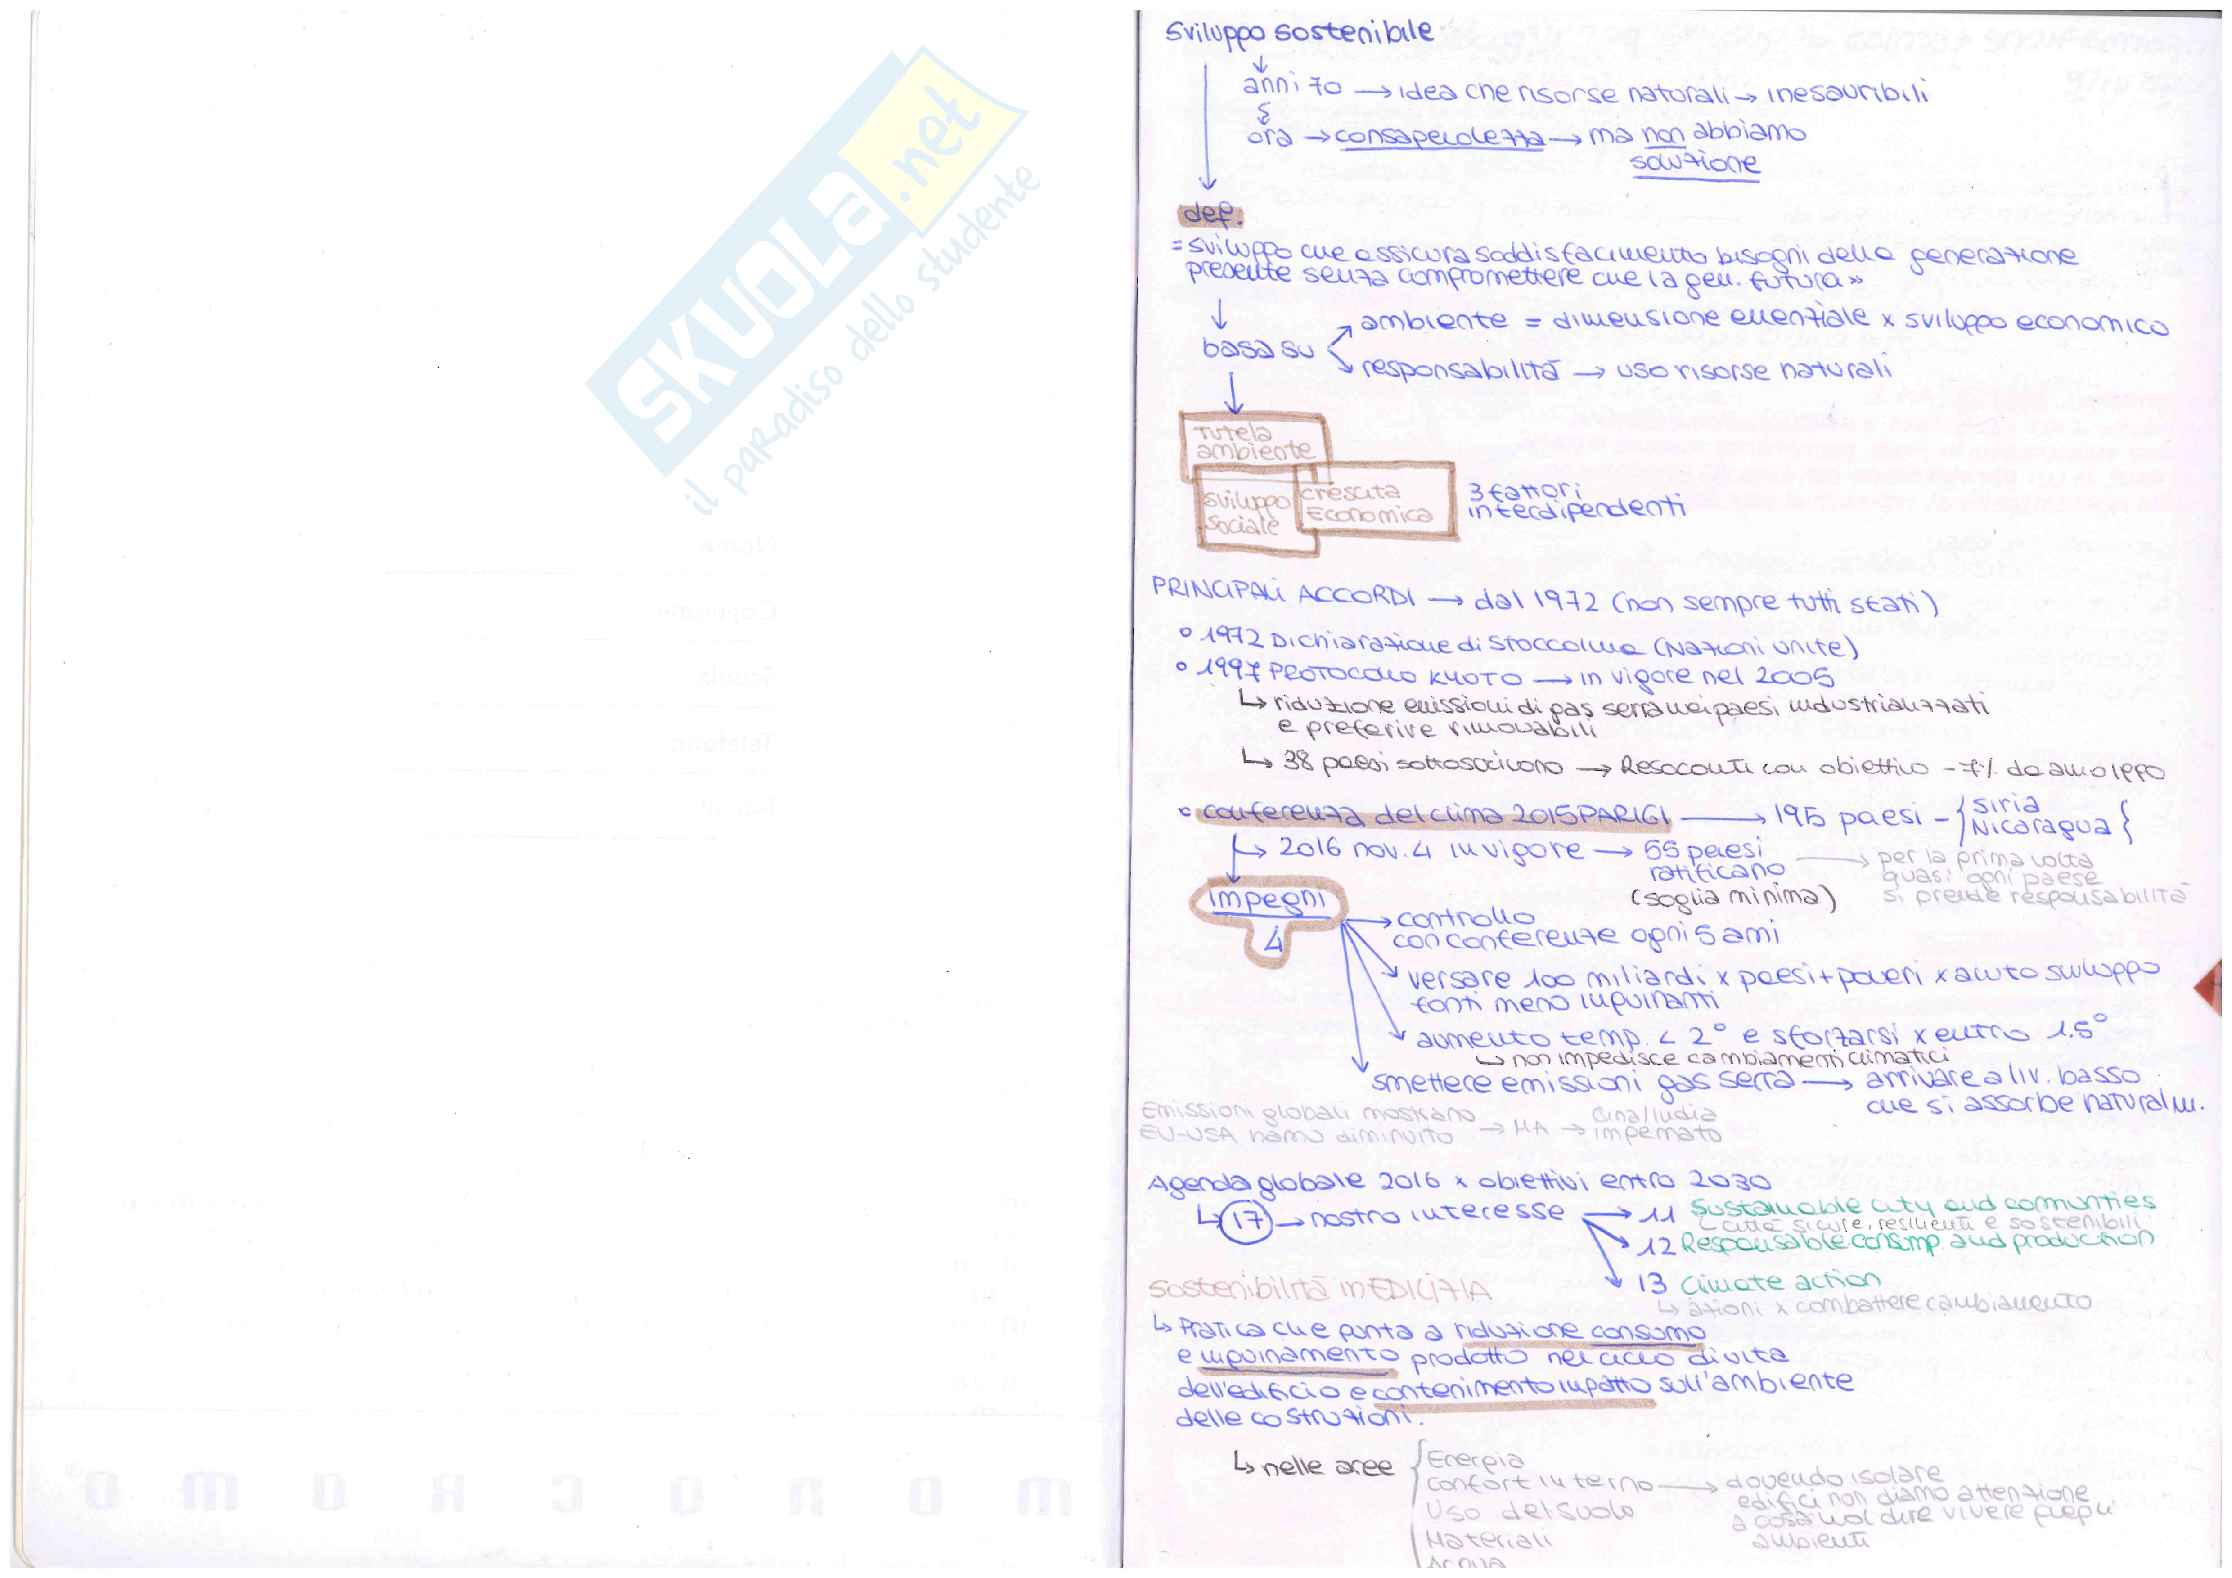 SKUOLA.net
il paradiso dello studente
Nome
Cognome
Scuola
Telefono
monocromo
Sviluppo sostenibile
anni 70 → idea che risorse naturali → inesauribili
ora → consapevolezza → ma non abbiamo
soluzione
def.
= sviluppo che assicura soddisfacimento bisogni della generazione
presente senza compromettere che la gen. futura »
ambiente = dimensione essenziale x sviluppo economico
basa su
responsabilità → uso risorse naturali
Tutela
ambiente
sviluppo
sociale
crescita
Economica
3 fattori
interdipendenti
PRINCIPALI ACCORDI → dal 1972 (non sempre tutti stati)
° 1972 Dichiarazione di Stoccolma (Nazioni unite)
° 1997 PROTOCOLLO KYOTO → in vigore nel 2005
↳ riduzione emissioni di gas serra nei paesi industrializzati
e preferire rinnovabili
↳ 38 paesi sottoscrivono → Resoconti con obiettivo -7% da anno 1990
° conferenza del clima 2015 PARIGI → 195 paesi - { Siria
Nicaragua {
↳ 2016 nov. 4 in vigore → 55 paesi
ratificano
(soglia minima)
→ per la prima volta
quasi ogni paese
si prende responsabilità
impegni
4
→ controllo
con conferenze ogni 5 anni
versare 100 miliardi x paesi + poveri x aiuto sviluppo
fonti meno inquinanti
aumento temp. < 2° e sforzarsi x entro 1.5°
↳ non impedisce cambiamenti climatici
smettere emissioni gas serra → arrivare a liv. basso
che si assorbe naturalm.
Emissioni globali mostrano
EU-USA hanno diminuito → MA → Cina/India
impennato
Agenda globale 2016 x obiettivi entro 2030
↳ 17 → nostro interesse → 11 Sustainable city and comunties
↳ città sicure, resilienti e sostenibili
12 Responsable consump and production
13 Climate action
↳ azioni x combattere cambiamento
Sostenibilità in EDILIZIA
↳ Pratica che punta a riduzione consumo
e inquinamento prodotto nel ciclo di vita
dell'edificio e contenimento impatto sull'ambiente
delle costruzioni.
↳ nelle aree { Energia
confort interno → dovendo isolare
edifici non diamo attenzione
a cosa vuol dire vivere quegli
ambienti
Uso del suolo
Materiali
Acqua